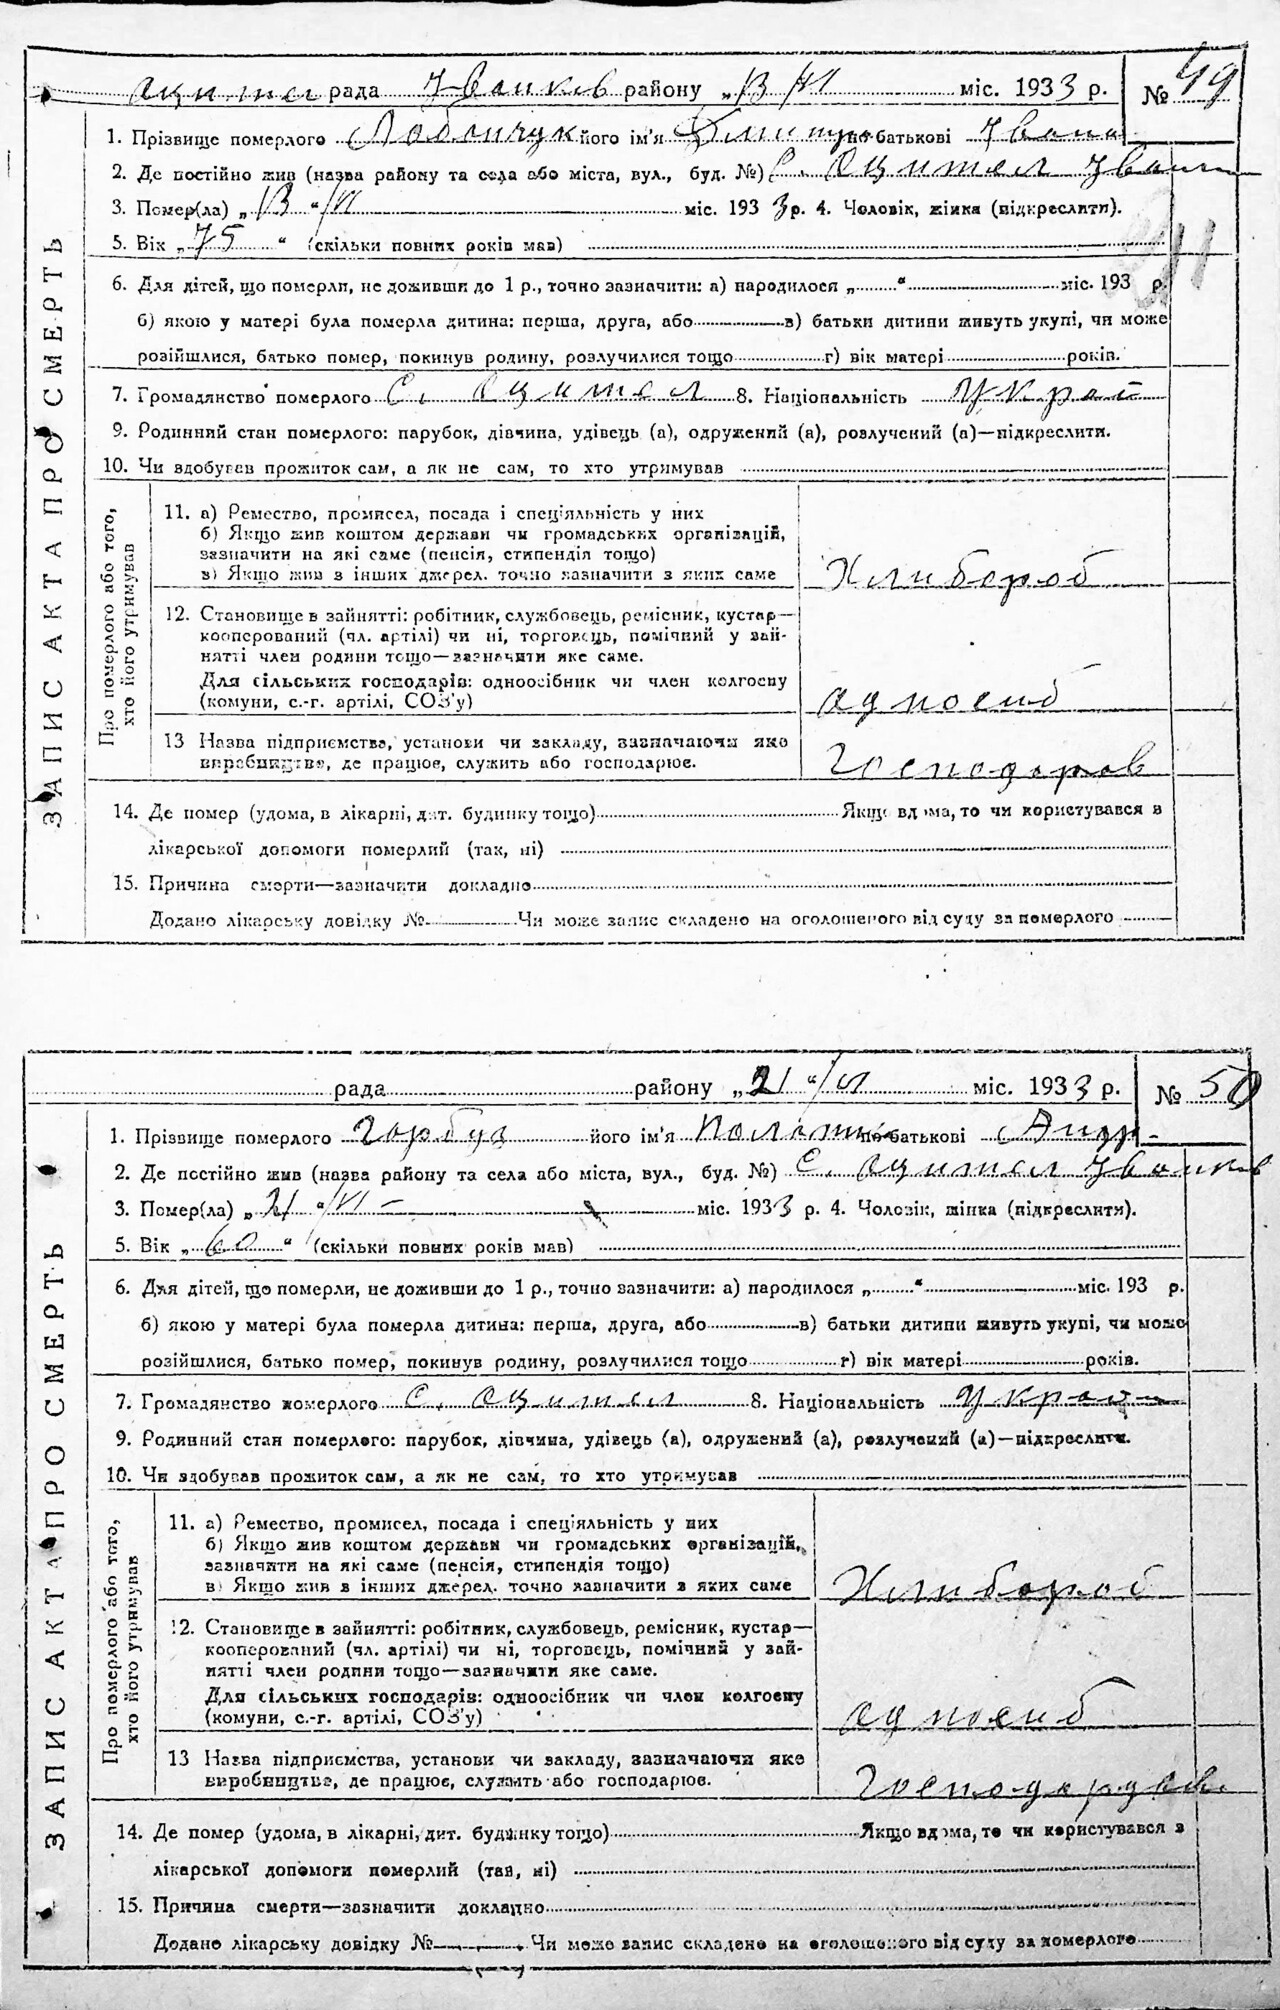 Оцител рада Іванків району „13"/VI міс. 1933 р. № 49
1. Прізвище померлого Лобончук його ім'я Дмитро по батькові Івано
2. Де постійно жив (назва району та села або міста, вул., буд. №) С. Оцител Іванк
3. Помер(ла) „13"/VI міс. 1933 р. 4. Чоловік, жінка (підкреслити).
5. Вік „75" (скільки повних років мав)
6. Для дітей, що померли, не доживши до 1 р., точно зазначити: а) народилося „ " міс. 193 р.
б) якою у матері була померла дитина: перша, друга, або в) батьки дитини живуть укупі, чи може
розійшлися, батько помер, покинув родину, розлучилися тощо г) вік матері років.
7. Громадянство померлого С. Оцител 8. Національність Украї
9. Родинний стан померлого: парубок, дівчина, удівець (а), одружений (а), розлучений (а)—підкреслити.
10. Чи здобував прожиток сам, а як не сам, то хто утримував
ЗАПИС АКТА ПРО СМЕРТЬ
Про померлого або того,
хто його утримував
11. а) Ремество, промисел, посада і спеціяльність у них
б) Якщо жив коштом держави чи громадських організацій,
зазначити на які саме (пенсія, стипендія тощо)
в) Якщо жив з інших джерел. точно зазначити з яких саме
Хлибороб
12. Становище в зайнятті: робітник, службовець, ремісник, кустар—
кооперований (чл. артілі) чи ні, торговець, помічний у зай-
нятті член родини тощо—зазначити яке саме.
Для сільських господарів: одноосібник чи член колгоспу
(комуни, с.-г. артілі, СОЗ'у)
одноосиб
13 Назва підприємства, установи чи закладу, зазначаючи яке
виробництво, де працює, служить або господарює.
Господаров
14. Де помер (удома, в лікарні, дит. будинку тощо) Якщо вдома, то чи користувався з
лікарської допомоги померлий (так, ні)
15. Причина смерти—зазначити докладно
Додано лікарську довідку № Чи може запис складено на оголошеного від суду за померлого
рада району „21"/VI міс. 1933 р. № 50
1. Прізвище померлого Горбуз його ім'я по батькові Андр-
2. Де постійно жив (назва району та села або міста, вул., буд. №) С. Оцител Іванків
3. Помер(ла) „21"/VI – міс. 1933 р. 4. Чоловік, жінка (підкреслити).
5. Вік „60" (скільки повних років мав)
6. Для дітей, що померли, не доживши до 1 р., точно зазначити: а) народилося „ " міс. 193 р.
б) якою у матері була померла дитина: перша, друга, або в) батьки дитини живуть укупі, чи може
розійшлися, батько помер, покинув родину, розлучилися тощо г) вік матері років.
7. Громадянство померлого С. Оцител 8. Національність Украї
9. Родинний стан померлого: парубок, дівчина, удівець (а), одружений (а), розлучений (а)—підкреслити.
10. Чи здобував прожиток сам, а як не сам, то хто утримував
ЗАПИС АКТА ПРО СМЕРТЬ
Про померлого або того,
хто його утримував
11. а) Ремество, промисел, посада і спеціяльність у них
б) Якщо жив коштом держави чи громадських організацій,
зазначити на які саме (пенсія, стипендія тощо)
в) Якщо жив з інших джерел. точно зазначити з яких саме
Хлибороб
12. Становище в зайнятті: робітник, службовець, ремісник, кустар—
кооперований (чл. артілі) чи ні, торговець, помічний у зай-
нятті член родини тощо—зазначити яке саме.
Для сільських господарів: одноосібник чи член колгоспу
(комуни, с.-г. артілі, СОЗ'у)
одноосиб
13 Назва підприємства, установи чи закладу, зазначаючи яке
виробництво, де працює, служить або господарює.
14. Де помер (удома, в лікарні, дит. будинку тощо) Якщо вдома, то чи користувався з
лікарської допомоги померлий (так, ні)
15. Причина смерти—зазначити докладно
Додано лікарську довідку № Чи може запис складено на оголошеного від суду за померлого